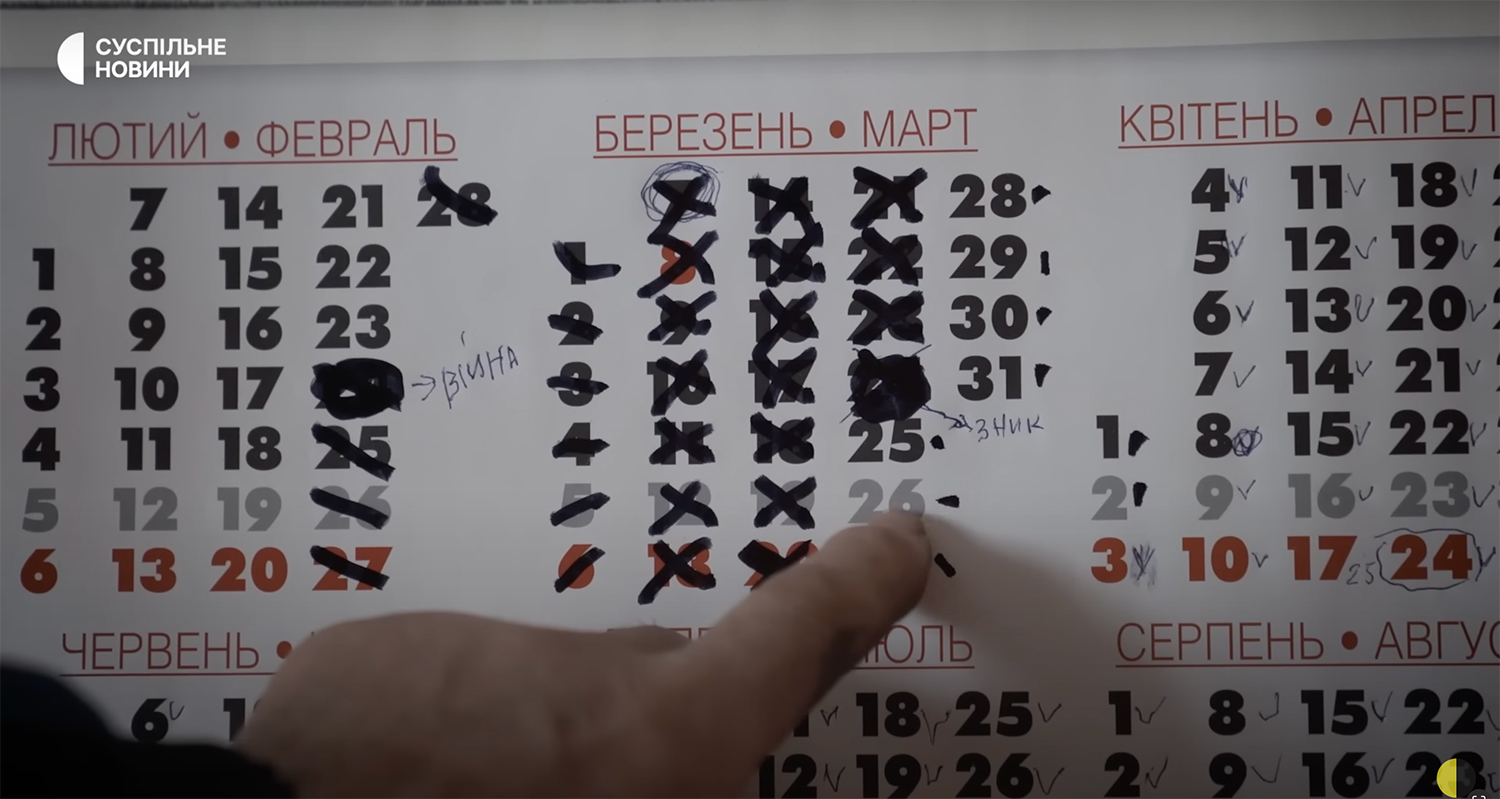 СУСПІЛЬНЕ
НОВИНИ
ЛЮТИЙ • ФЕВРАЛЬ
7 14 21 28
1 8 15 22
2 9 16 23
3 10 17
4 11 18 25
5 12 19 26
6 13 20 27
→ ВІЙНА
БЕРЕЗЕНЬ • МАРТ
14 21 28
1 8 15 22 29
2 9 16 23 30
3 10 17 31
4 11 18 25
5 12 19 26
6 13 20
ЗНИК
КВІТЕНЬ • АПРЕЛ
4 11 18
5 12 19
6 13 20
7 14 21
1 8 15 22
2 9 16 23
3 10 17 25 24
ЧЕРВЕНЬ •
6
ЮЛЬ
18 25
12 19 26
СЕРПЕНЬ • АВГУС
1 8 15 22
2 9 16